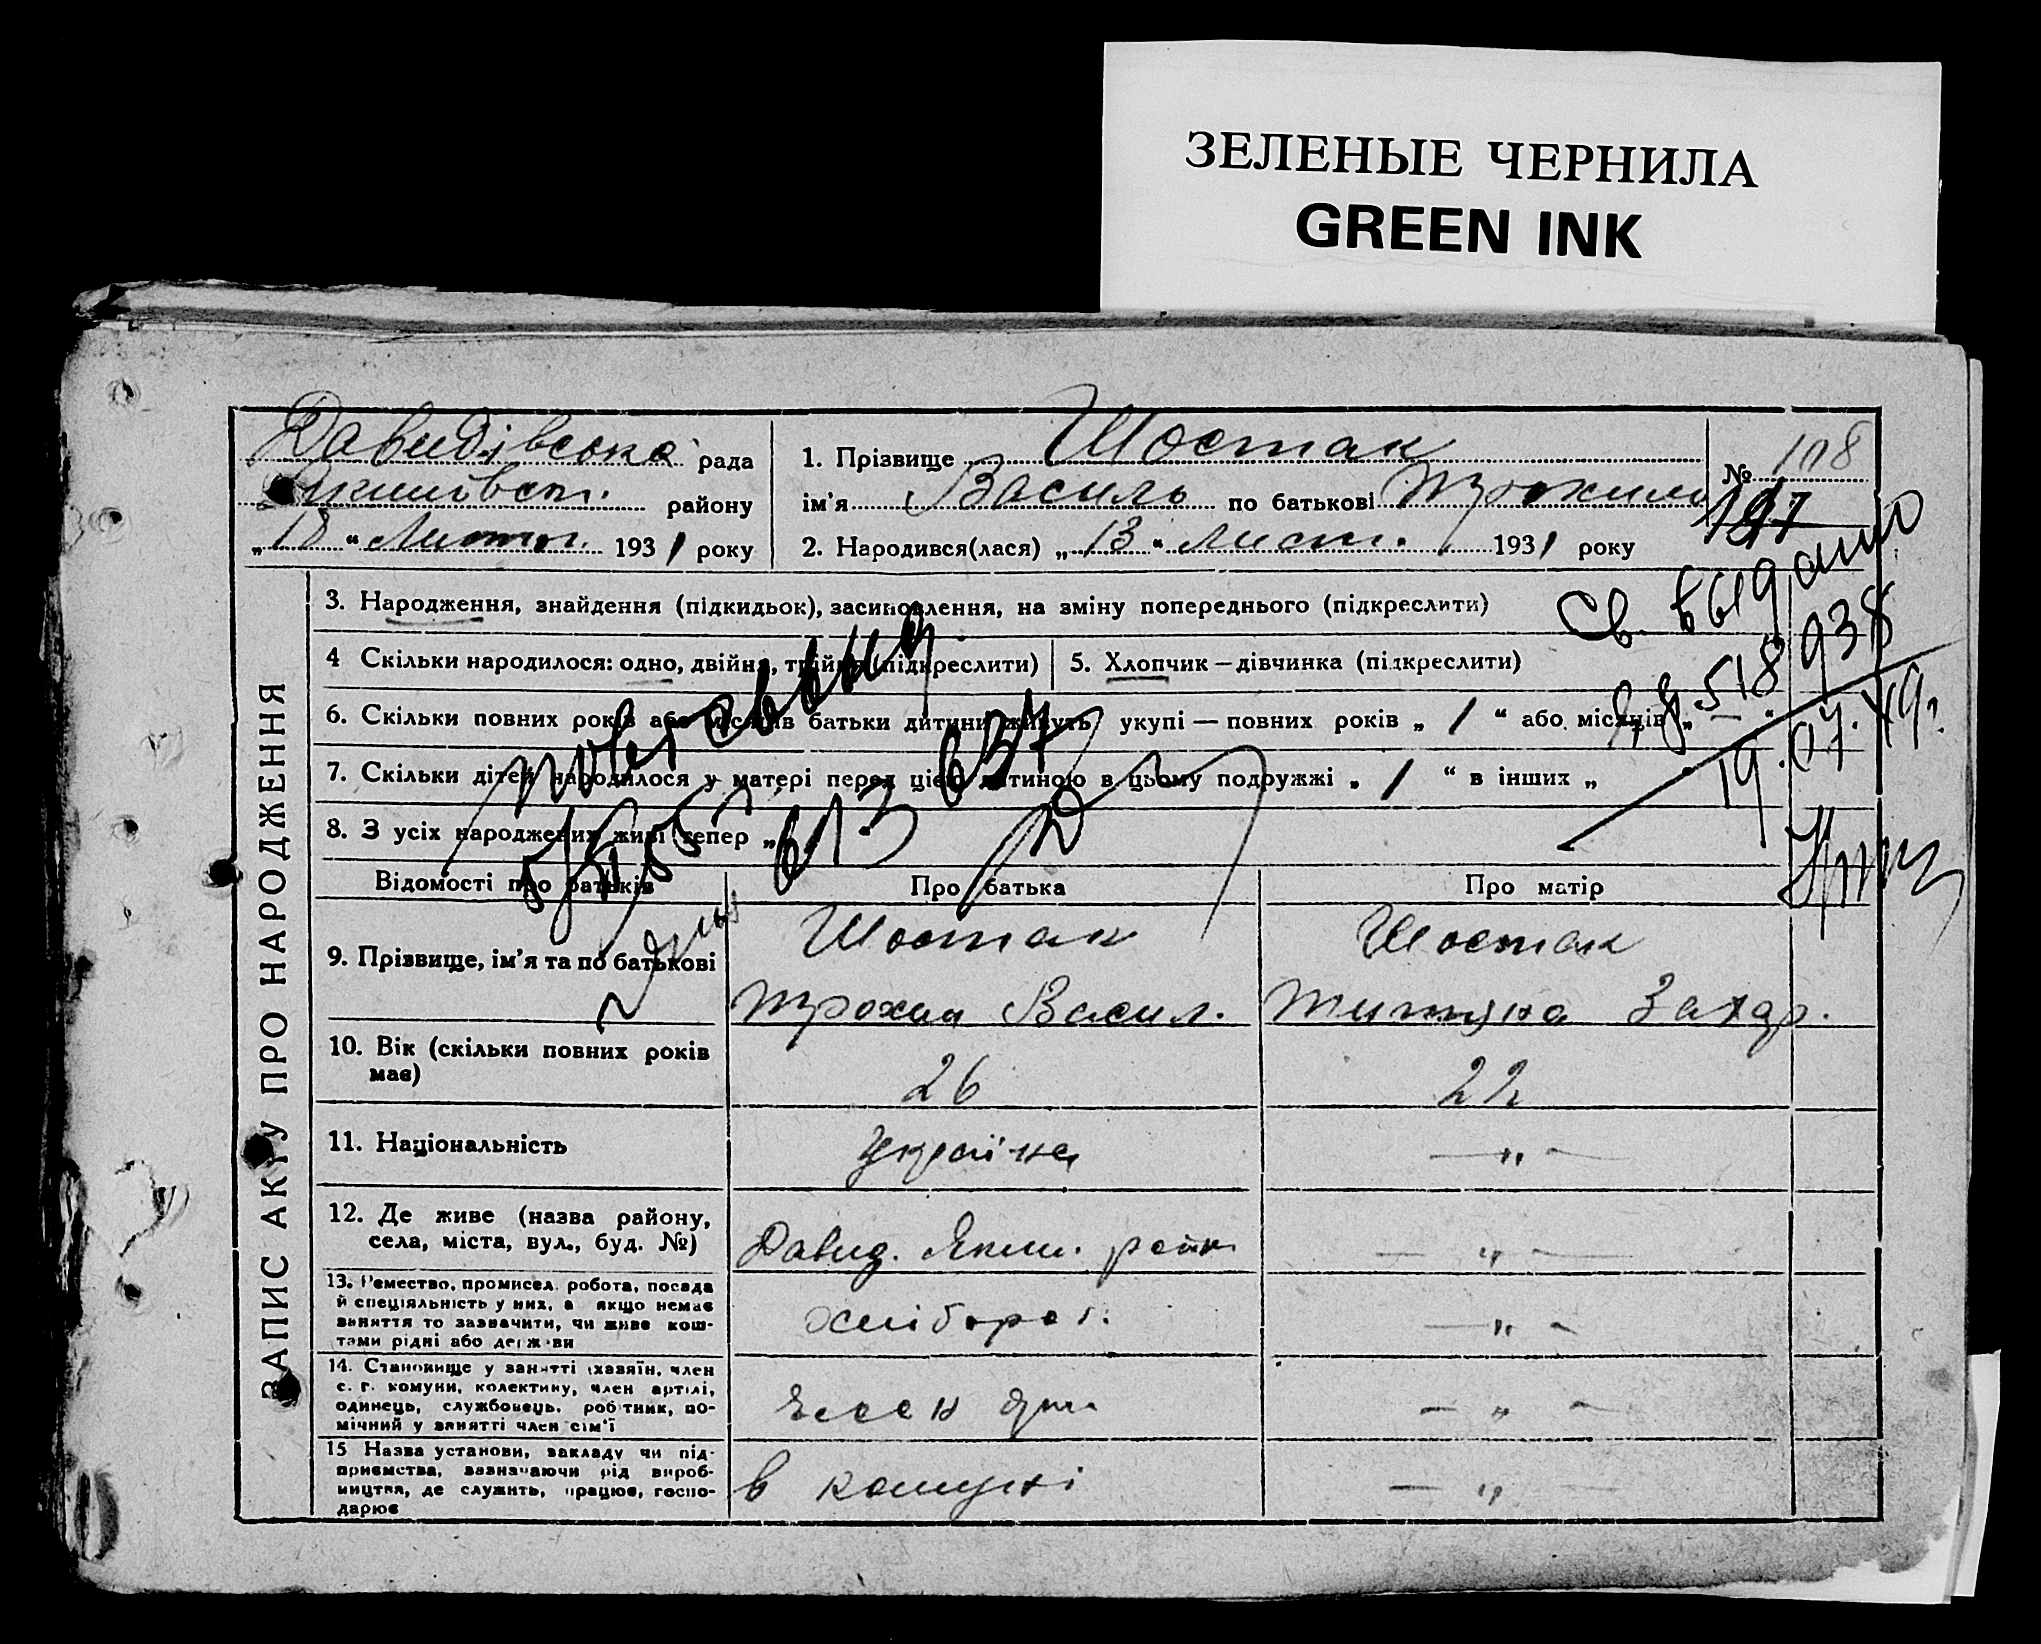 ЗЕЛЕНЫЕ ЧЕРНИЛА
GREEN INK
Давидівська рада
району
„18“ Лютог. 1931 року
1. Прізвище Шостак
ім'я Василь по батькові Трохимов
2. Народився(лася) „13“ 1931 року
№ 108
197
Св. выдано
518938
19.07.49г.
ЗАПИС АКТУ ПРО НАРОДЖЕННЯ
3. Народження, знайдення (підкидьок), засиновлення, на зміну попереднього (підкреслити)
4 Скільки народилося: одно, двійня, трійня (підкреслити)
5. Хлопчик — дівчинка (підкреслити)
6. Скільки повних років або місяців батьки дитини живуть укупі — повних років „ 1 “ або місяців „ — “
7. Скільки дітей народилося у матері перед цією дитиною в цьому подружжі „ 1 “ в інших „
8. З усіх народжених живі тепер „
Відомості про батьків
Про батька
Про матір
9. Прізвище, ім'я та по батькові
Шостак
Трохим Васил.
Шостак
Титяна Захар.
10. Вік (скільки повних років має)
26
22
11. Національність
україне
— „ —
12. Де живе (назва району,
села, міста, вул., буд. №)
Давид. Яким. район
— „ —
13. Ремество, промисел, робота, посада
й спеціяльність у них, а якщо немає
заняття то зазначити, чи живе кош-
тами рідні або держави
хлібороб.
— „ —
14. Становище у занятті (хазяїн, член
с. г. комуни, колективу, член артілі,
одинець, службовець, робітник, по-
мічний у занятті член сім'ї
член
— „ —
15 Назва установи, закладу чи під-
приємства, зазначаючи рід вироб-
ництва, де служить, працює, госпо-
дарює
в комуні
— „ —